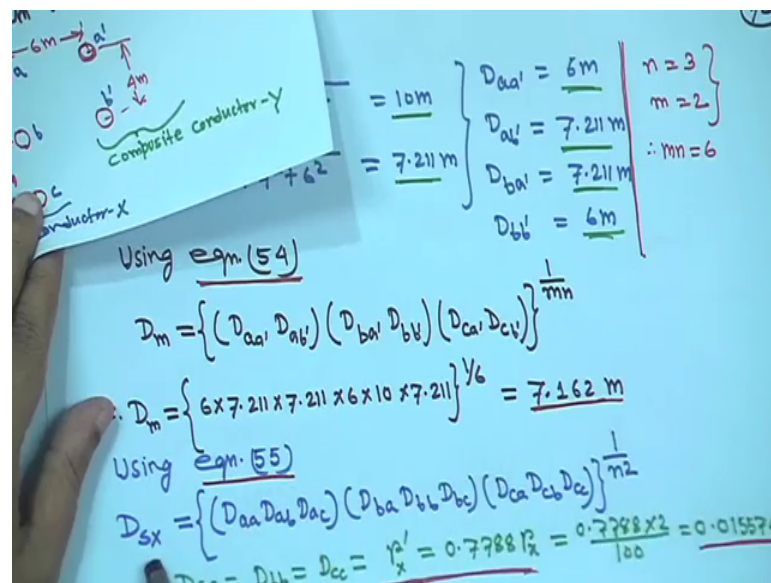 6m a'
a
4m
b'
composite conductor-Y
b
c
conductor-X
= 10m
+ 6² = 7.211 m
Daa' = 6m
Dab' = 7.211 m
Dba' = 7.211 m
Dbb' = 6m
n = 3
m = 2
∴ mn = 6
Using eqn.(54)
Dm = {(Daa' Dab') (Dba' Dbb') (Dca' Dcb')}^(1/mn)
∴ Dm = {6×7.211×7.211×6×10×7.211}^(1/6) = 7.162 m
Using eqn.(55)
Dsx = {(Daa Dab Dac) (Dba Dbb Dbc) (Dca Dcb Dcc)}^(1/n2)
Daa = Dbb = Dcc = r'x = 0.7788 rx = 0.7788×2/100 = 0.01557